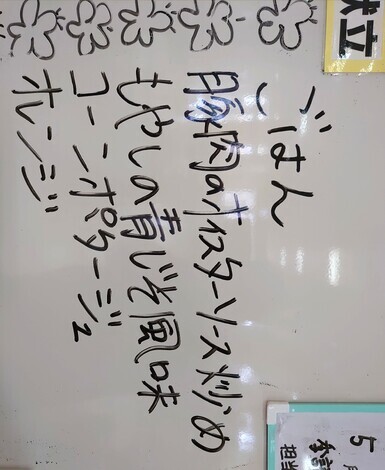 献立
ごはん
豚肉のオイスターソース炒め
もやしの青じそ風味
コーンポタージュ
オレンジ
5
担当